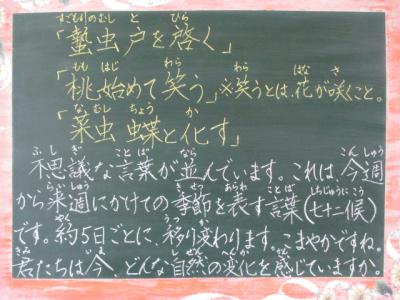 「蟄虫戸を啓く」
「桃始めて笑う」※笑うとは、花が咲くこと。
「菜虫 蝶と化す」
不思議な言葉が並んでいます。これは、今週
から来週にかけての季節を表す言葉(七十二候)
です。約5日ごとに、移り変わります。こまやかですね。
君たちは今、どんな自然の変化を感じていますか。